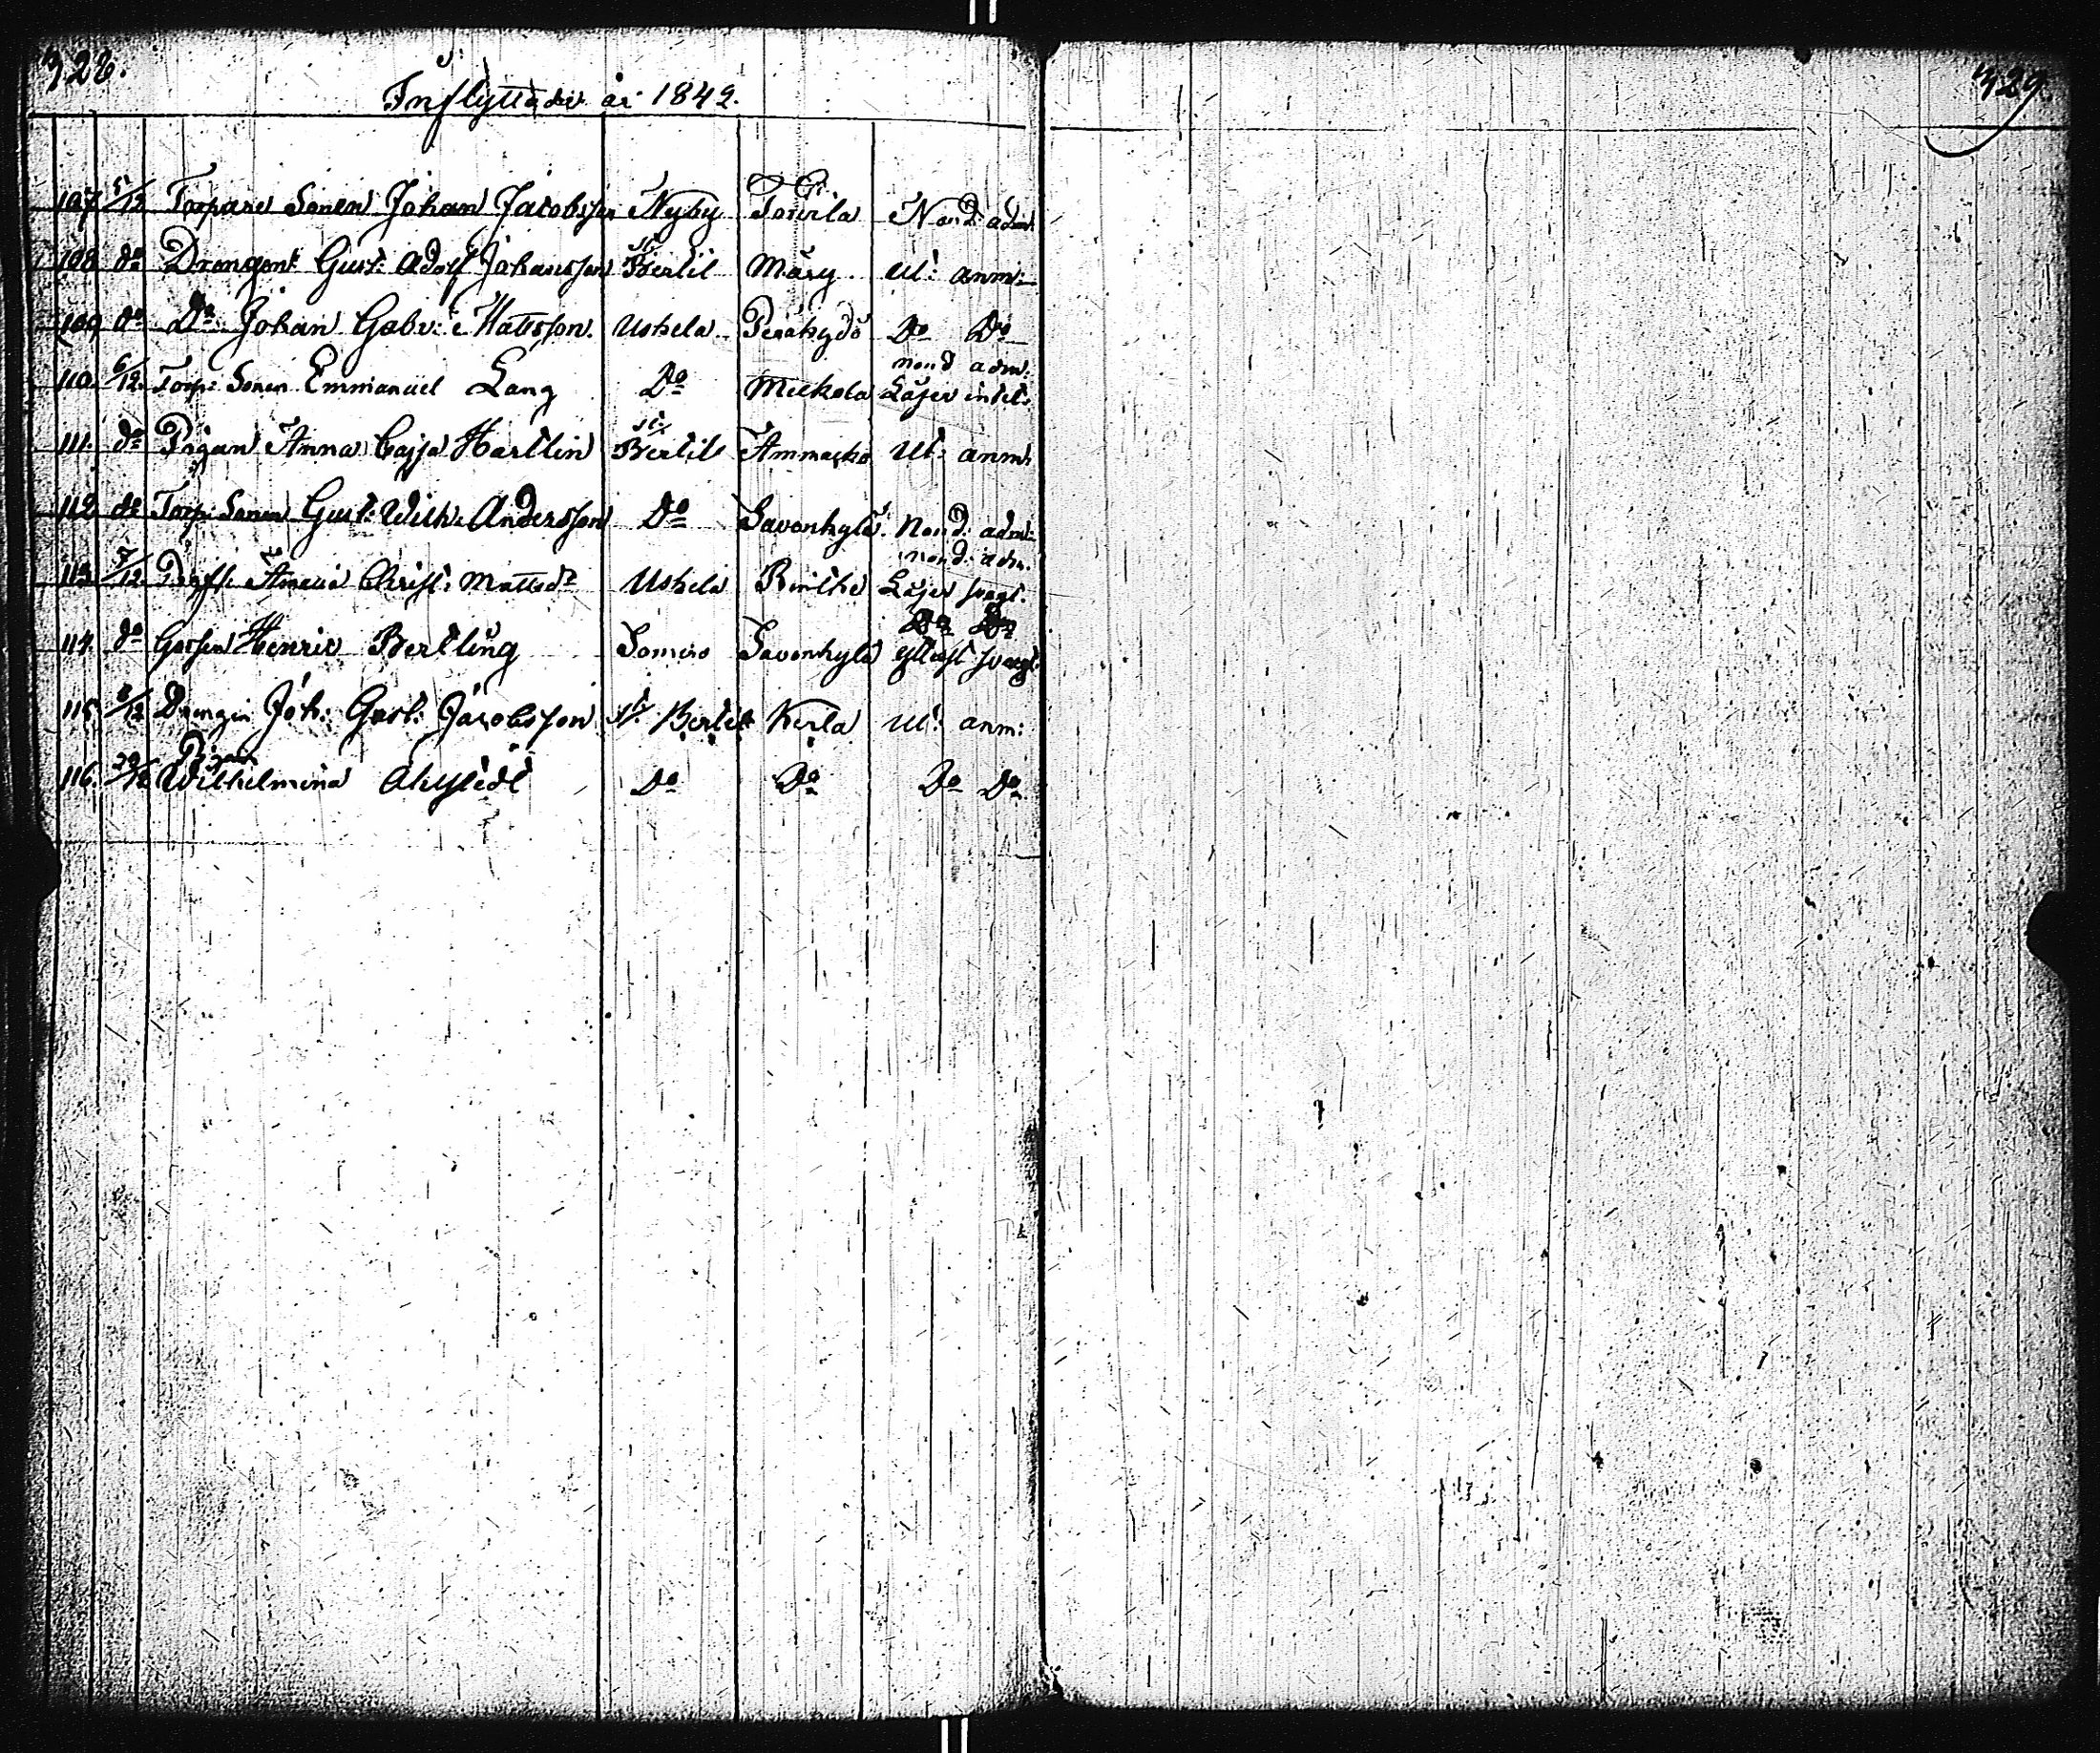 328.
329.
Inflyttade år 1842.
107. 5/12 Torpare Sonen Johan Jacobsson Nyby Torvila Nond: adm:
108. do Drängen Gust: Adolf Johansson St. Bertil Märy Ut: anm:
109. do Do Johan Gabr: Mattsson. Uskela Peräkylä Do Do
nond adm:
110. 6/12. Torp: Sonen Emmanuel Lang Do Mickola Läser
111. do Pigan Anna Cajsa Hartlin St. Bertil Ammakko Ut: anm:
112. do Torp: Sonen Gust: Wilh: Andersson Do Savonkylä. Nond: adm:
nond: adm.
113. 7/12. Christ: Mattsdr Uskela Läser svagt.
114. do Gossen Henric Bertling Somero Savonkylä svagt.
115. 8/12 Drängen Joh: Gust: Jacobsson St. Bertil Kerla Ut: anm:
Pigan
116. 29/12 Wilhelmina Do Do Do Do